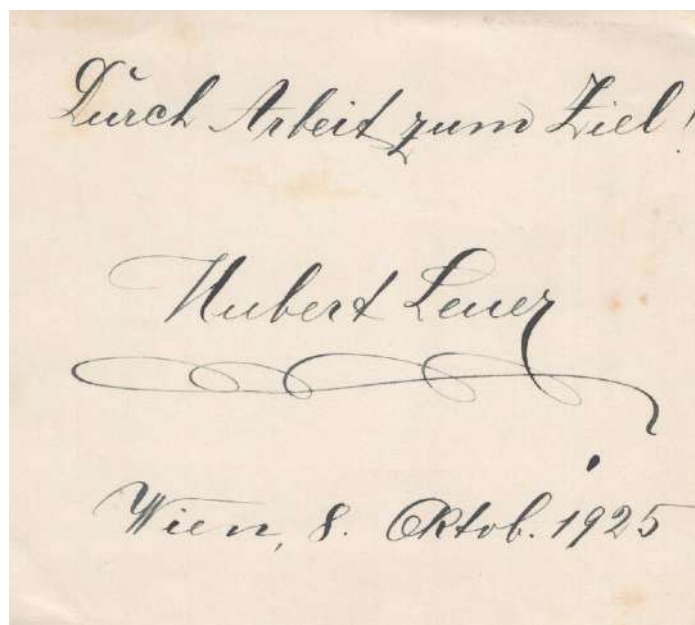 Durch Arbeit zum Ziel!
Hubert Leuer
Wien, 8. Oktob. 1925